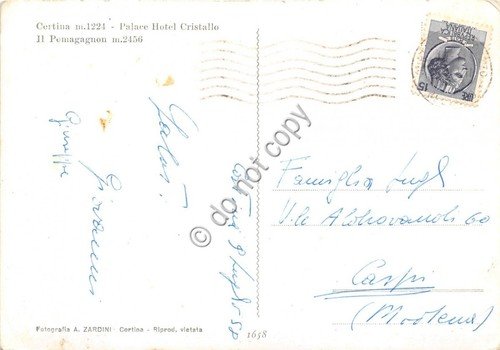 Cortina m.1224 - Palace Hotel Cristallo
Il Pomagagnon m.2456
Saluti
Giovanni
Giuseppe
Cortina 9 Luglio 58
Famiglia
V.le Aldrovandi 60
Carpi
(Modena)
Fotografia A. ZARDINI - Cortina - Riprod. vietata
1658
do not copy